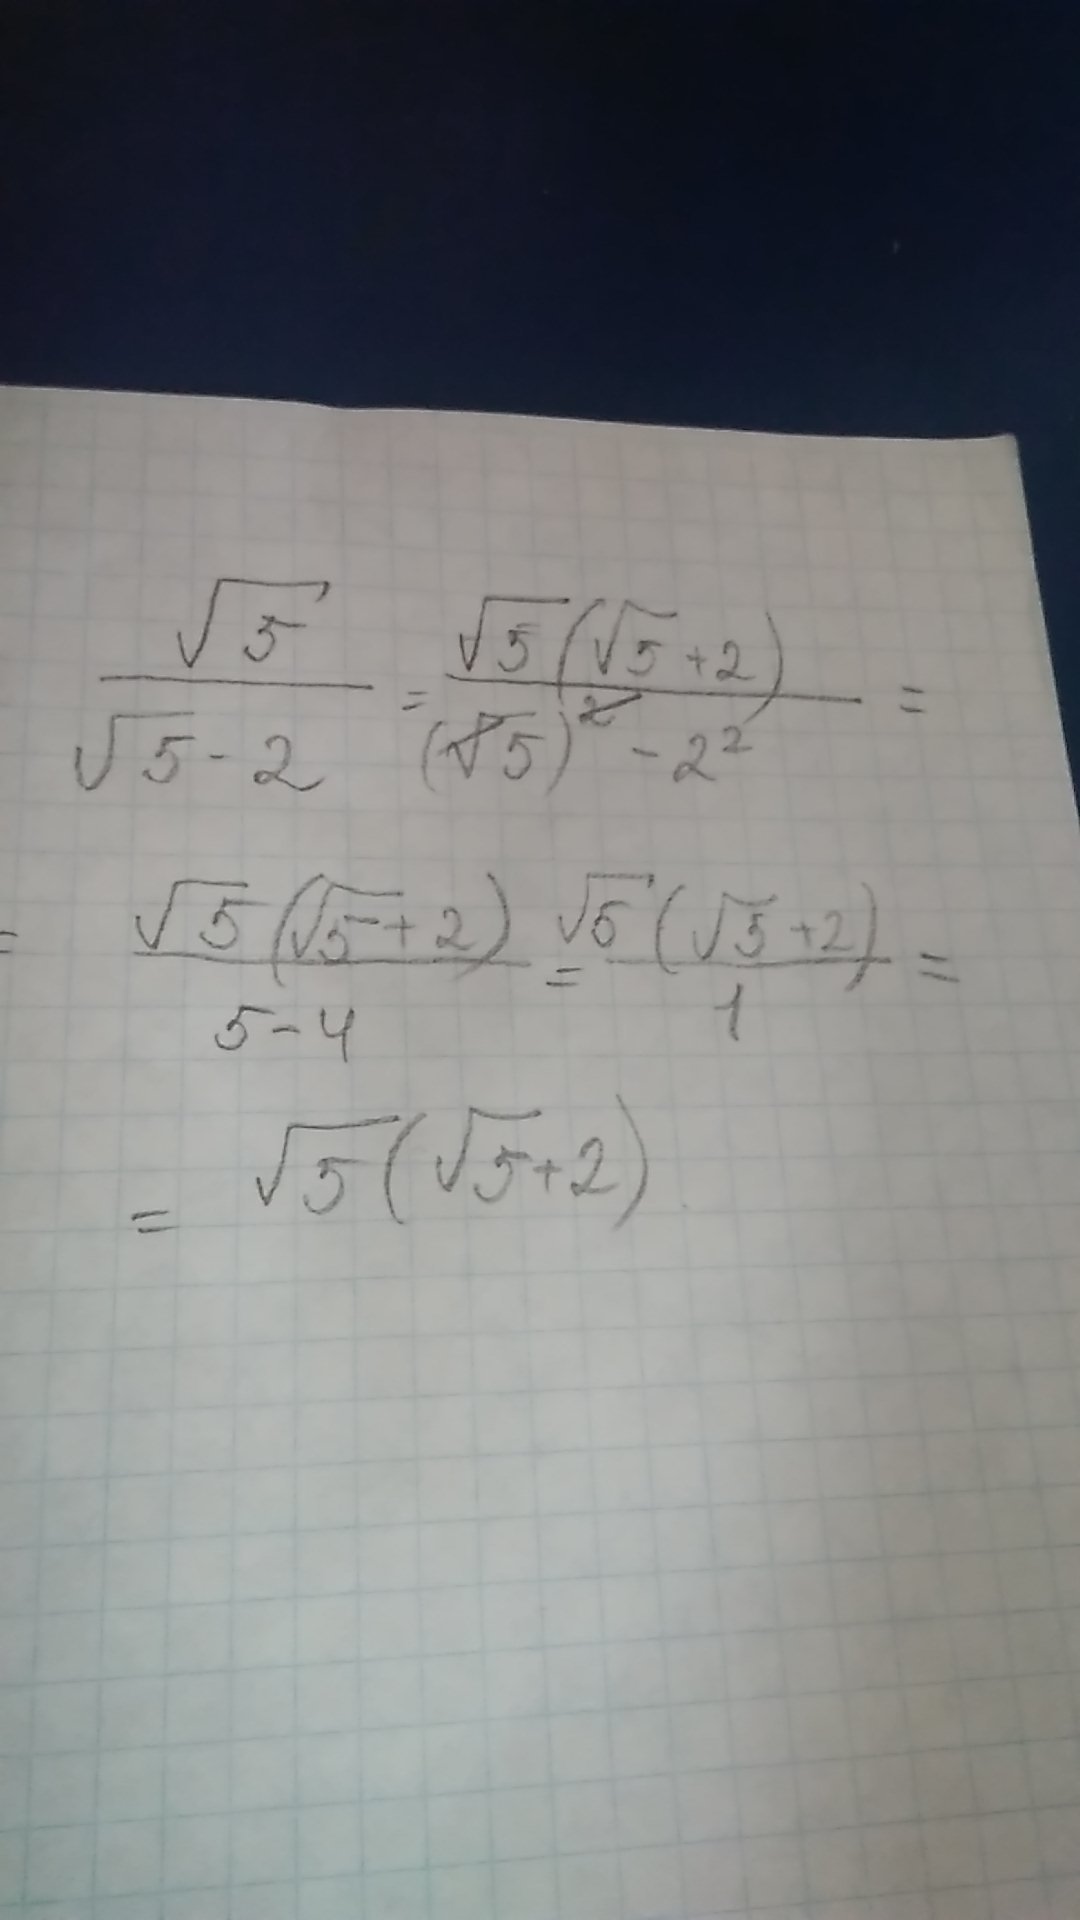 √5/(√5-2) = √5(√5+2)/((√5)²-2²) =
= √5(√5+2)/(5-4) = √5(√5+2)/1 =
= √5(√5+2)